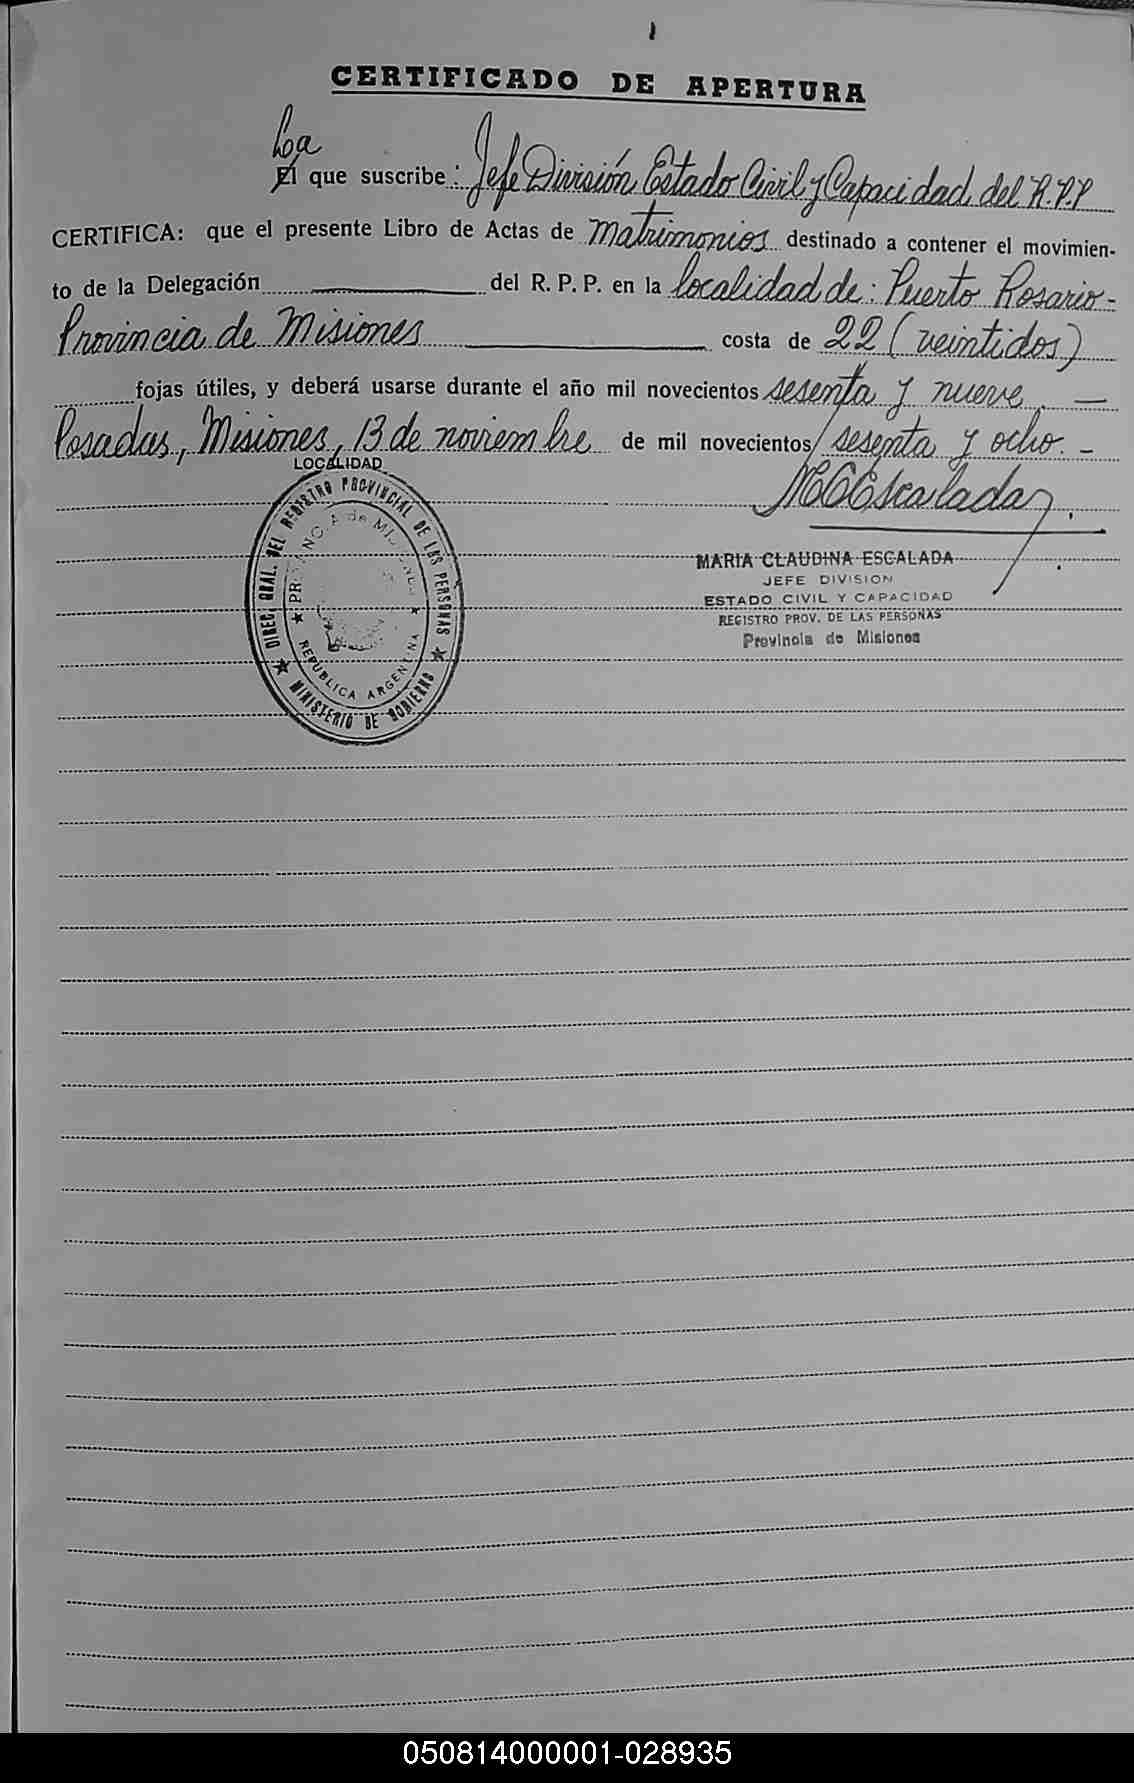 CERTIFICADO DE APERTURA
La
El que suscribe: Jefe División Estado Civil y Capacidad del R.P.P
CERTIFICA: que el presente Libro de Actas de Matrimonios destinado a contener el movimien-
to de la Delegación ——— del R. P. P. en la localidad de: Puerto Rosario-
Provincia de Misiones ——— costa de 22 (veintidos)
fojas útiles, y deberá usarse durante el año mil novecientos sesenta y nueve. —
Posadas, Misiones, 13 de noviembre de mil novecientos sesenta y ocho. -
LOCALIDAD
MCEscalada
DIREC. GRAL. DEL REGISTRO PROVINCIAL DE LAS PERSONAS
PROVINCIA de MISIONES
REPUBLICA ARGENTINA
MINISTERIO DE GOBIERNO
MARIA CLAUDINA ESCALADA
JEFE DIVISION
ESTADO CIVIL Y CAPACIDAD
REGISTRO PROV. DE LAS PERSONAS
Provincia de Misiones
050814000001-028935